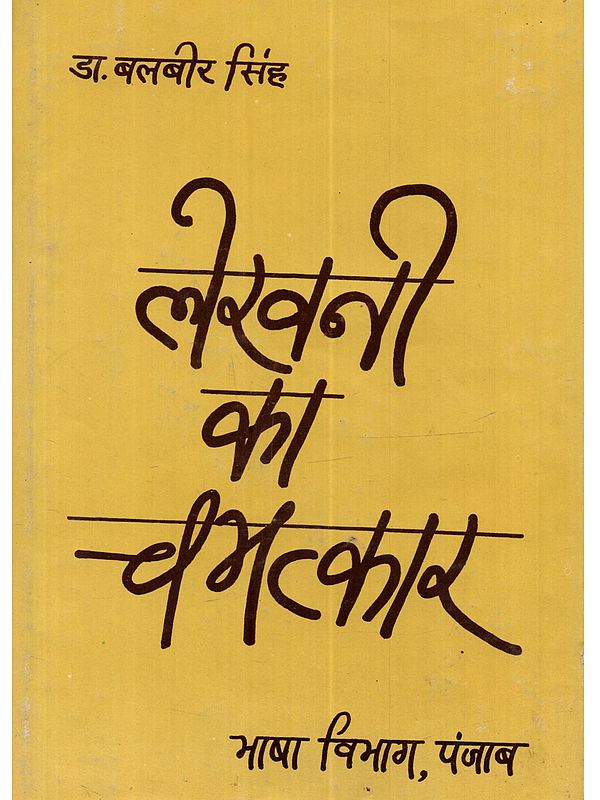 डा. बलबीर सिंह
लेखनी
का
चमत्कार
भाषा विभाग, पंजाब